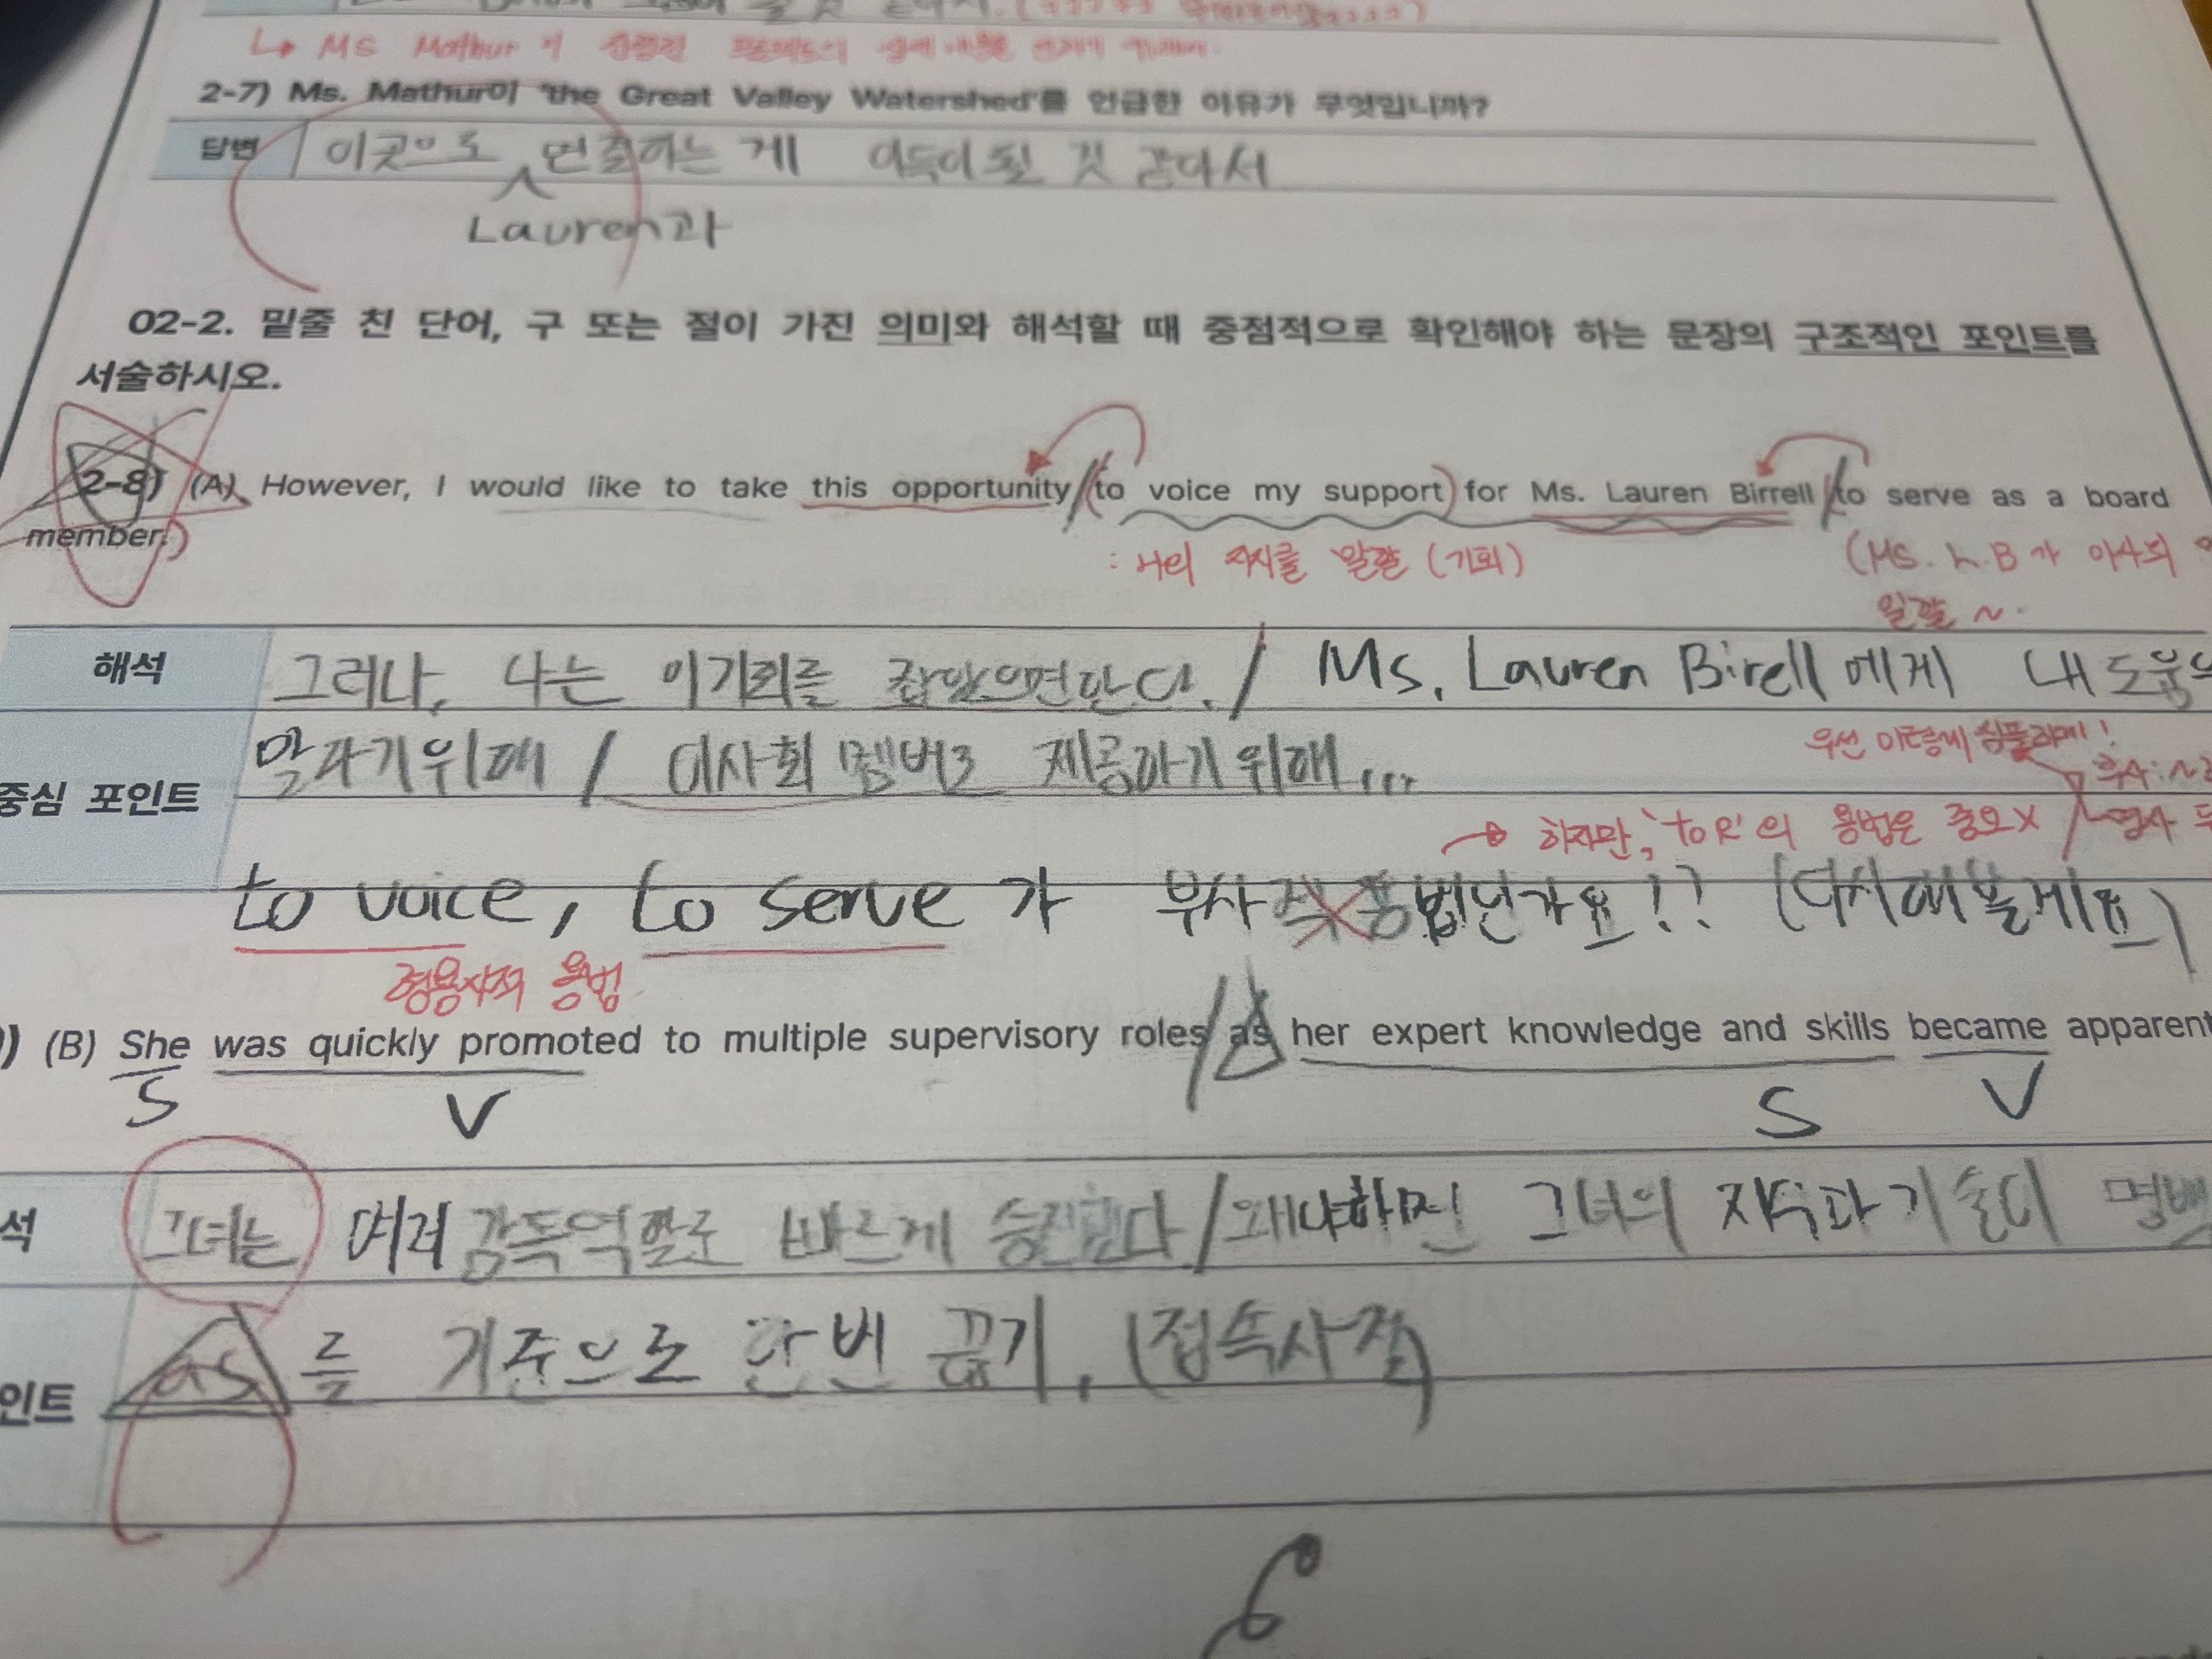 ↳ Ms Mathur가
2-7) Ms. Mathur이 'the Great Valley Watershed'를 언급한 이유가 무엇입니까?
답변 이곳으로 연결하는 게 이득이 될 것 같아서
Lauren과
02-2. 밑줄 친 단어, 구 또는 절이 가진 의미와 해석할 때 중점적으로 확인해야 하는 문장의 구조적인 포인트를
서술하시오.
2-8) (A) However, I would like to take this opportunity to voice my support for Ms. Lauren Birrell to serve as a board
member.
: 나의 지지를 말할 (기회)
(Ms. L.B가 이사회
일할 ~
해석 그러나, 나는 이기회를 잡았으면한다. / Ms. Lauren Birell에게 내 도움
말하기위해 / 이사회 멤버로 제공하기위해...
우선 이렇게 심플하게!
중심 포인트
→ 하지만, 'to R'의 용법은 중요X
to voice, to serve가 부사적용법인가요!? (다시해볼게요)
형용사적 용법
) (B) She was quickly promoted to multiple supervisory roles as her expert knowledge and skills became apparent
S V S V
석 그녀는 여러 감독역할로 빠르게 승진했다 / 왜냐하면 그녀의 지식과 기술이 명백
인트 as를 기준으로 한번 끊기, (접속사절)